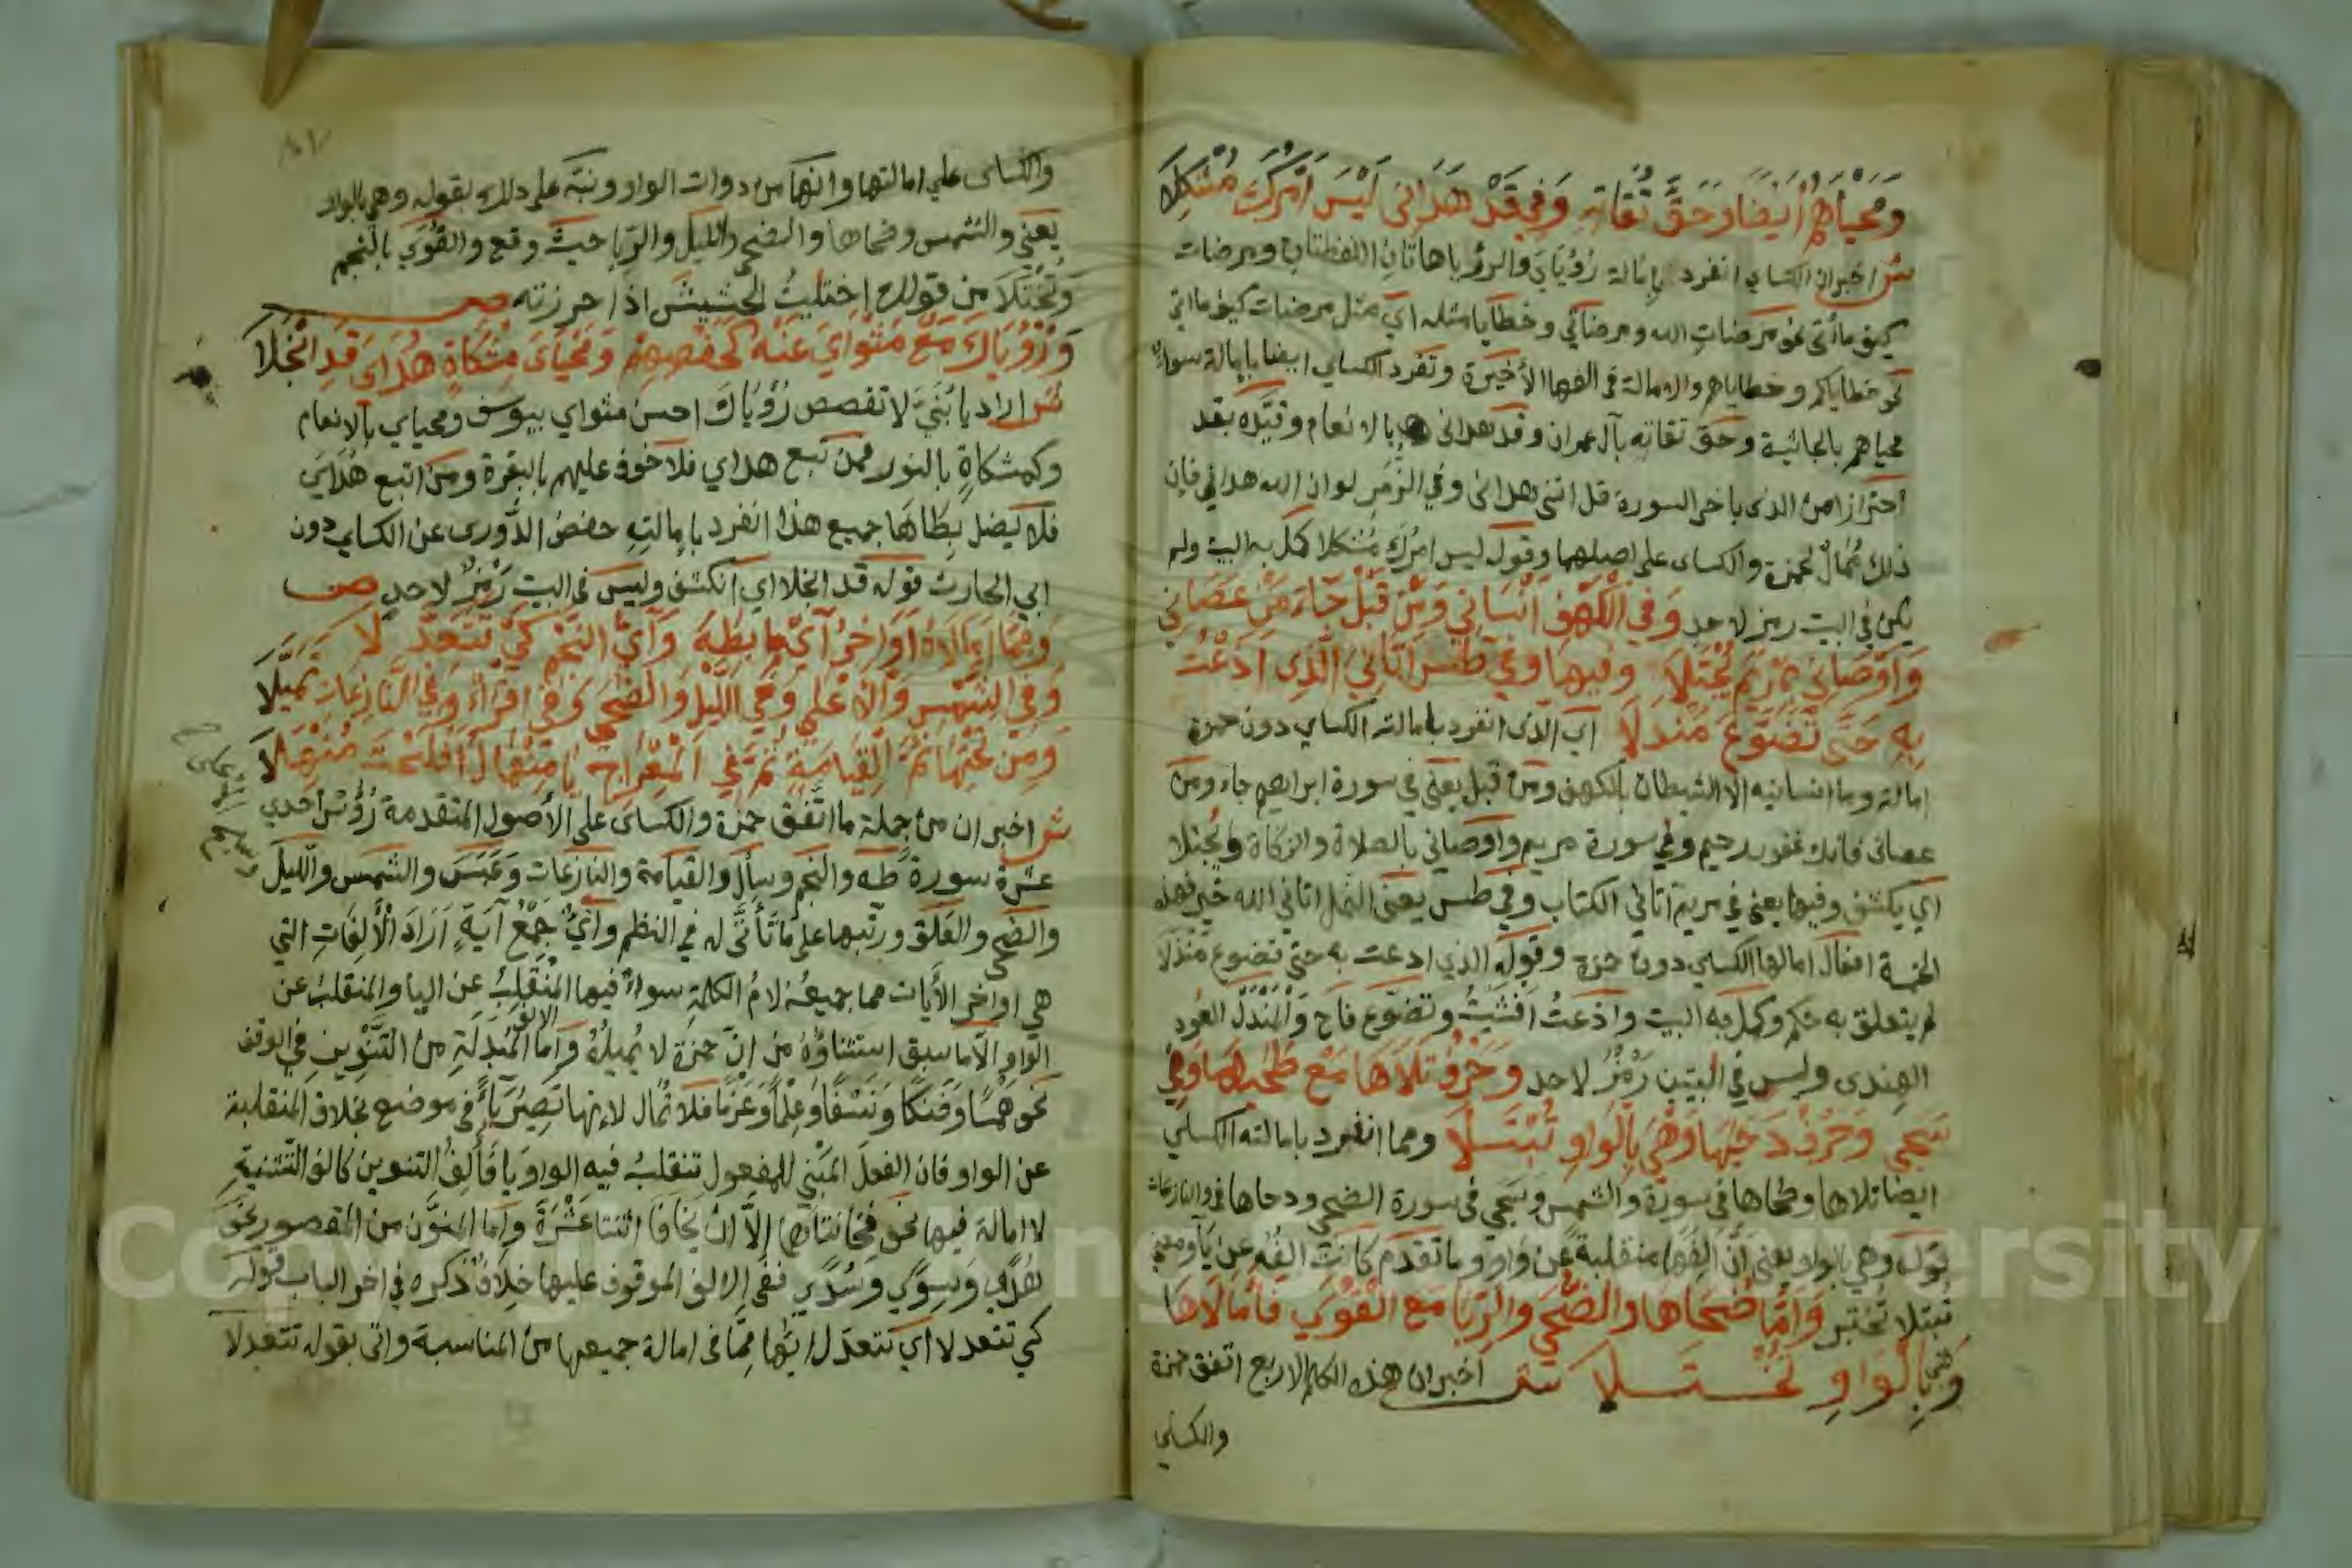 وَمَحْيَاهُمُ أَيْضًا وَحَقَّ تُقَاتِهِ وَفِي قَدْ هَدَانِي لَيْسَ أَمْرُكَ مُشْكِلَا
ش اخبر ان الكساي انفرد بامالة رُؤْيَايَ والرؤيا هاتان اللفظتان ومرضات
كيف ما أتى نحو مرضات الله ومرضاتي وخطايا مثله اي مثل مرضات كيف ما اتى
نحو خطاياكم وخطاياهم والامالة في الفها الأخيرة وتفرد الكساي ايضا بامالة سواء
محياهم بالجاثية وحق تقاته بآل عمران وقد هدانى بالانعام وقيّده بقد
احترازا من الذى باخر السورة قل انني هدانى وفي الزُّمَر لو ان الله هداني فإن
ذلك مُمَالٌ لحمزة والكساى على اصلهما وقوله ليس امرُكَ مُشكلا كمّل به البيت ولم
يكن في البيت رمز لاحد وَفي الْكَهْفِ أَنْسَانِي وَمِنْ قَبْلُ جَاءَ مَنْ عَصَانِي
وَأَوْصَانِي بِمَرْيَمَ يُجْتَلَا وفيها وفي طس آتَانِيَ الَّذِي أَذَعْتُ
بِهِ حَتَّى تَضَوَّعَ مَنْدَلَا اي الذى انفرد بامالته الكساي دون حمزة
امالة وما انسانيه الا الشيطان بالكهف ومن قبل يعني في سورة ابراهيم جاء ومن
عصانى فانك غفور رحيم وفي سورة مريم وأوصاني بالصلاة والزكاة ويُجتلا
اي يكشف وفيها يعنى في مريم آتاني الكتاب وفي طس يعنى النمل اتاني الله خير فهذه
الخمسة افعال امالها الكساي دون حمزة وقوله الذي اذعت به حتى تضوع مندلا
لم يتعلق به حكم وكمل به البيت واذعتُ افشيتُ وتضوّع فاح والمَنْدَلُ العُودِ
الهندى وليس في البيتين رَمْزٌ لاحد وَحَرْفُ تَلَاهَا مَعْ طَحَاهَا وَفِي
سَجَى وَحَرْفُ دَحَاهَا وَهْيَ بِالْوَاوِ تُبْتَلَا ومما انفرد بامالته الكساي
ايضا تلاها وطحاها في سورة والشمس وسجى في سورة الضحى ودحاها في والنازعات
قوله وهي بالواو يعني أنّ الِفَهَا منقلبة عن واو وما تقدم كانت الفُه عن يآء ومعني
تُبتلا تُختبر وَأَمَّا ضُحَاهَا وَالضُّحَى وَالرِّبَا مَعَ الْقُوَى فَأَمَالَاهَا
وَبِالْوَاوِ تُخْتَلَا ش اخبر ان هذه الكلم الاربع اتفق حمزة
والكساي
والكساى علي امالتها وانها من ذوات الواو ونبّه على ذلك بقوله وهي بالواو
يعني والشمس وضحاها والضحى والليل والرّبا حيث وقع والقُوَى بالنجم
وتُخْتَلَا من قولك اختليتُ الحشيشَ اذا حرزته ص
وَرُؤْيَاكَ مَعْ مَثْوَايَ عَنْهُ لِحَفْصِهِمْ وَمَحْيَايَ مِشْكَاةٍ هُدَايَ قَدِ انْجَلَا
ش اراد يا بُنَيَّ لا تقصص رُؤْيَاكَ احسن مثواي بيوسف ومحياي بالانعام
وكمشكاةٍ بالنور فمن تبع هداي فلا خوف عليهم بالبقرة ومن اتبع هُدَايَ
فلا يضل بِطَاهَا جميع هذا انفرد بامالتِهِ حفصُ الدُّورى عن الكساي دون
ابي الحارث قوله قد انجلا اي انكشف وليس في البيت رَمْزٌ لاحدٍ ص
وَمِمَّا أَمَالَاهُ أَوَاخِرُ آيِ مَا بِطَهَ وَآيِ النَّجْمِ كَيْ تَتَعَدَّلَا
وَفِي الشَّمْسِ وَالْأَعْلَى وَفِي اللَّيْلِ وَالضُّحَى وَفِي اقْرَأْ وَفِي النَّازِعَاتِ تَمَيَّلَا
وَمِنْ تَحْتِهَا ثُمَّ الْقِيَامَةِ ثُمَّ فِي الْمَعَارِجِ يَا مِنْهَالُ أَفْلَحْتَ مُنْهِلَا
ش اخبر ان من جملة ما اتّفق حمزة والكساى على الأصول المتقدمة رُؤُس احدي
عشرة سورة طه والنجم وسأل والقيامة والنازعات وَعَبَسَ والشمس والليل
والضحى والعلق ورتّبها على ما تأتّى له في النظم وآيٌ جَمْعُ آيَةٍ أَرَادَ الْأَلِفَاتِ التي
هي اواخر الأيات مما جميعُهُ لامُ الكلمة سواءٌ فيها المُنْقَلِبُ عن اليا والمنقلبُ عن
الواو الّا ما سبق استثناؤُهُ من انّ حمزة لا يُميلُهُ وَأما الالف المُبْدَلَةِ من التّنوين في الوقف
نحو هَمْسًا وَضَنكًا وَنَسْفًا وَعِلْمًا وَعَزْمًا فلا تُمال لانها تَصِيرُ يآءً في موضع بخلاف المنقلبة
عن الواو فان الفعلَ المَبْنِي للمفعول تنقلبُ فيه الواو يا فَأَلِفُ التنوين كالف التّثنيةِ
لا امالة فيها نحو فخانتاهما الّا ان يخافا اثنتا عَشْرَةَ وأما المنوّن من المقصور نحو
هُدًى وَسِوًى وَسُدًى ففي الالف الموقوف عليها خِلَافٌ ذكره في اخر الباب قوله
كي تتعدلا اي تتعدّل آيُها مما فى امالة جميعها من المناسبة واتى بقوله تتعدلا